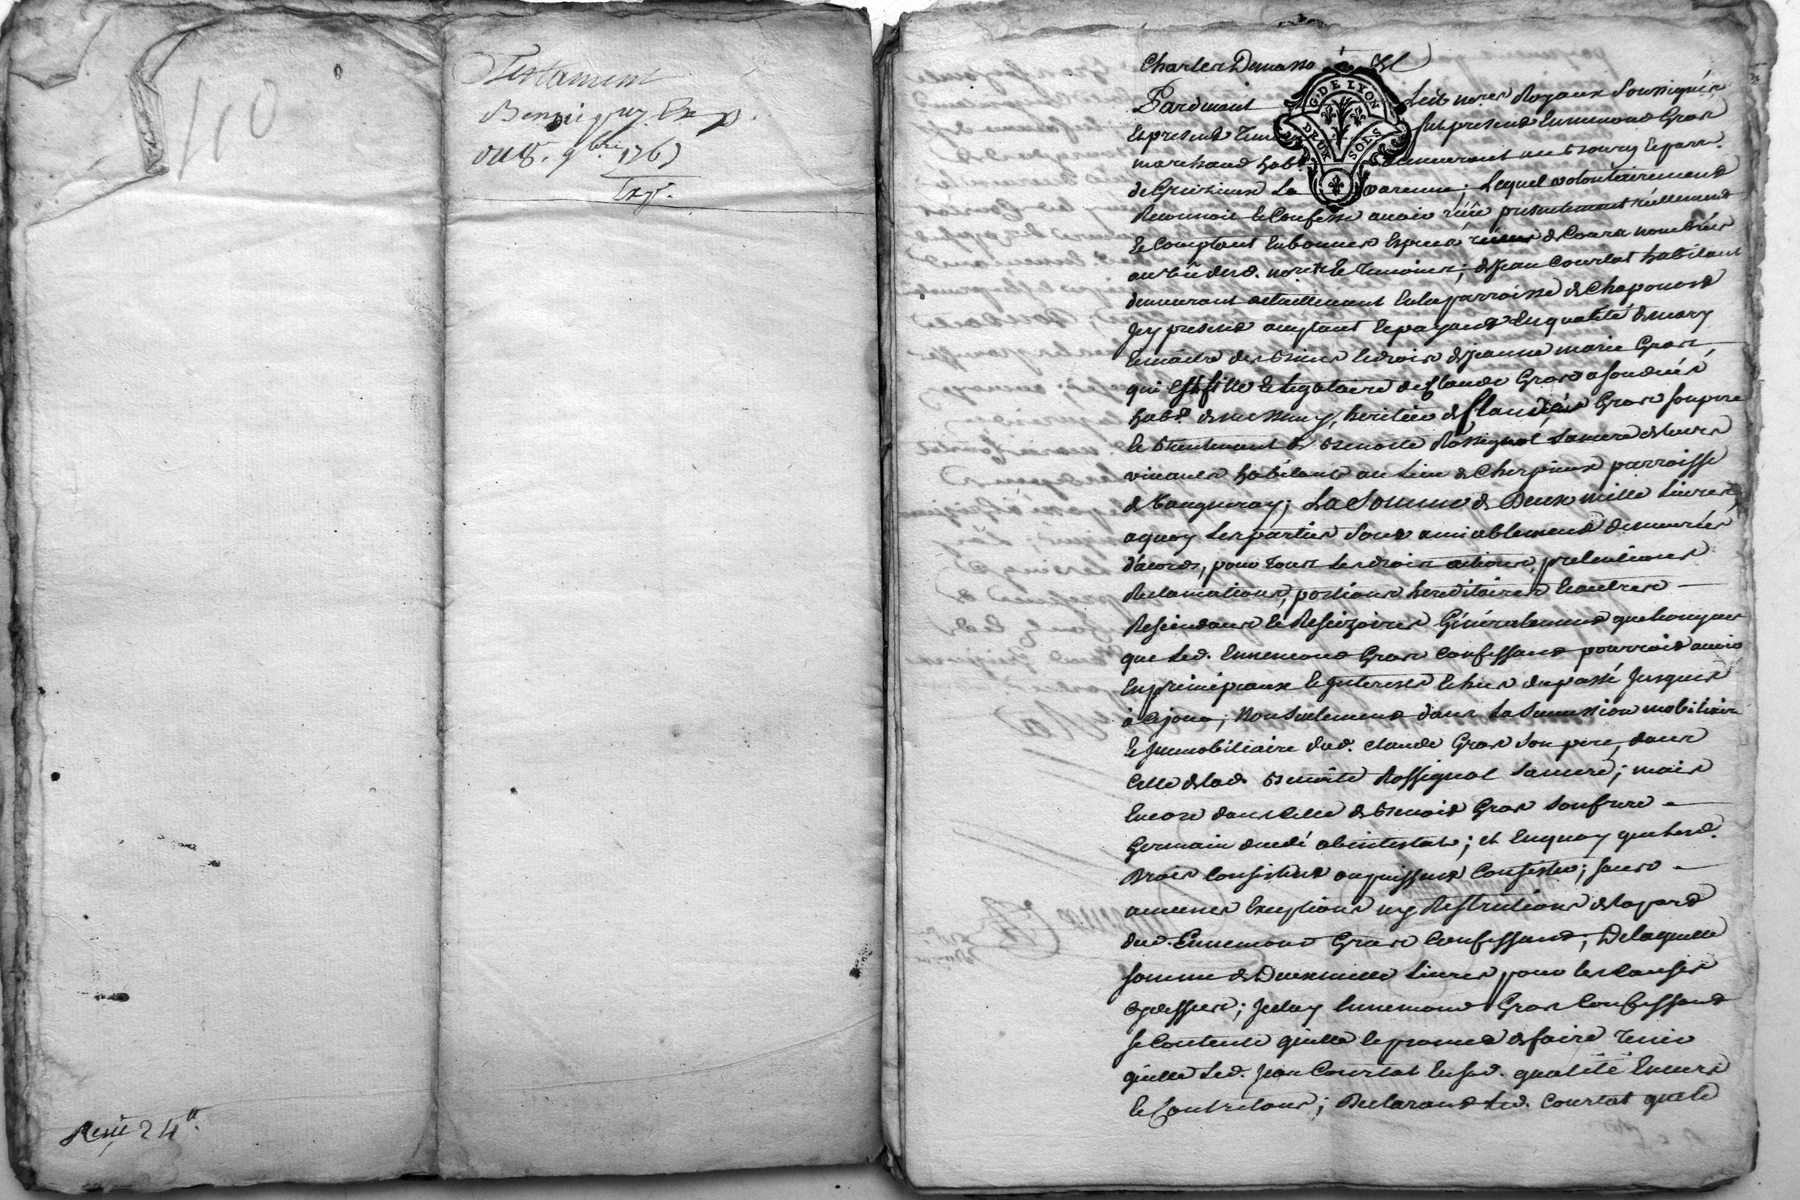 110
Testament
du 8. 9bre 1767
Exp.
Reçu 24ᵗᵗ.
G. DE LYON
DEUX SOLS
Pardevant Les nores Royaux Soussignés
Et presents Temoins fut present Ennemond Gros
marchand habt. demeurant au Bourg et parr.
de Grezieux La varenne; Lequel volontairement
Reconnoit et Confesse avoir reçu presentement réellement
et Comptant En bonnes Especes de Cours nombrées
au vû desd. nores et Temoins; de Jean Courlat habitant
demeurant actuellement En la parroisse de Chaponost
Icy present acceptant et payant En qualité de mary
et maitre des Biens et droits de Jeanne marie Gros,
qui Est fille et Legataire de Claude Gros
habt. de heritier de Claude Gros son pere
et de Benoite Rossignol, sa mere de leurs
vivants habitants au Lieu de parroisse
de Vaugneray; La Somme de Deux mille Livres,
a quoy Les parties Sont amiablement demeurées
d'acords, pour Tous Les droits actions, pretentions
Reclamations, portions hereditaires Et autres
Rescindants et Rescizoires Généralement quelconques
que Led. Ennemond Gros Confessant pourroit avoir
En principaux et Interests Echus du passé Jusques
à ce jour; Non Seulement dans La Succession mobiliaire
et Immobiliaire dud. Claude Gros Son pere, dans
Celle de lad. Benoite Rossignol Sa mere; mais
Encore dans Celle de Benoit Gros Son frere
Germain decedé abintestat; et En quoy que lesd.
Droits Consistent ou puissent Consister; sans
aucunes Exceptions ny Restrictions de la part
dud. Ennemond Gros Confessant; De laquelle
somme de Deux mille Livres pour les Causes
Cy dessus; Iceluy Ennemond Gros Confessant
se Contente quitte et promet de faire Tenir
quitte Led. Jean Courlat En sad. qualité Envers
et Contre tous; Declarant Led. Courlat que le